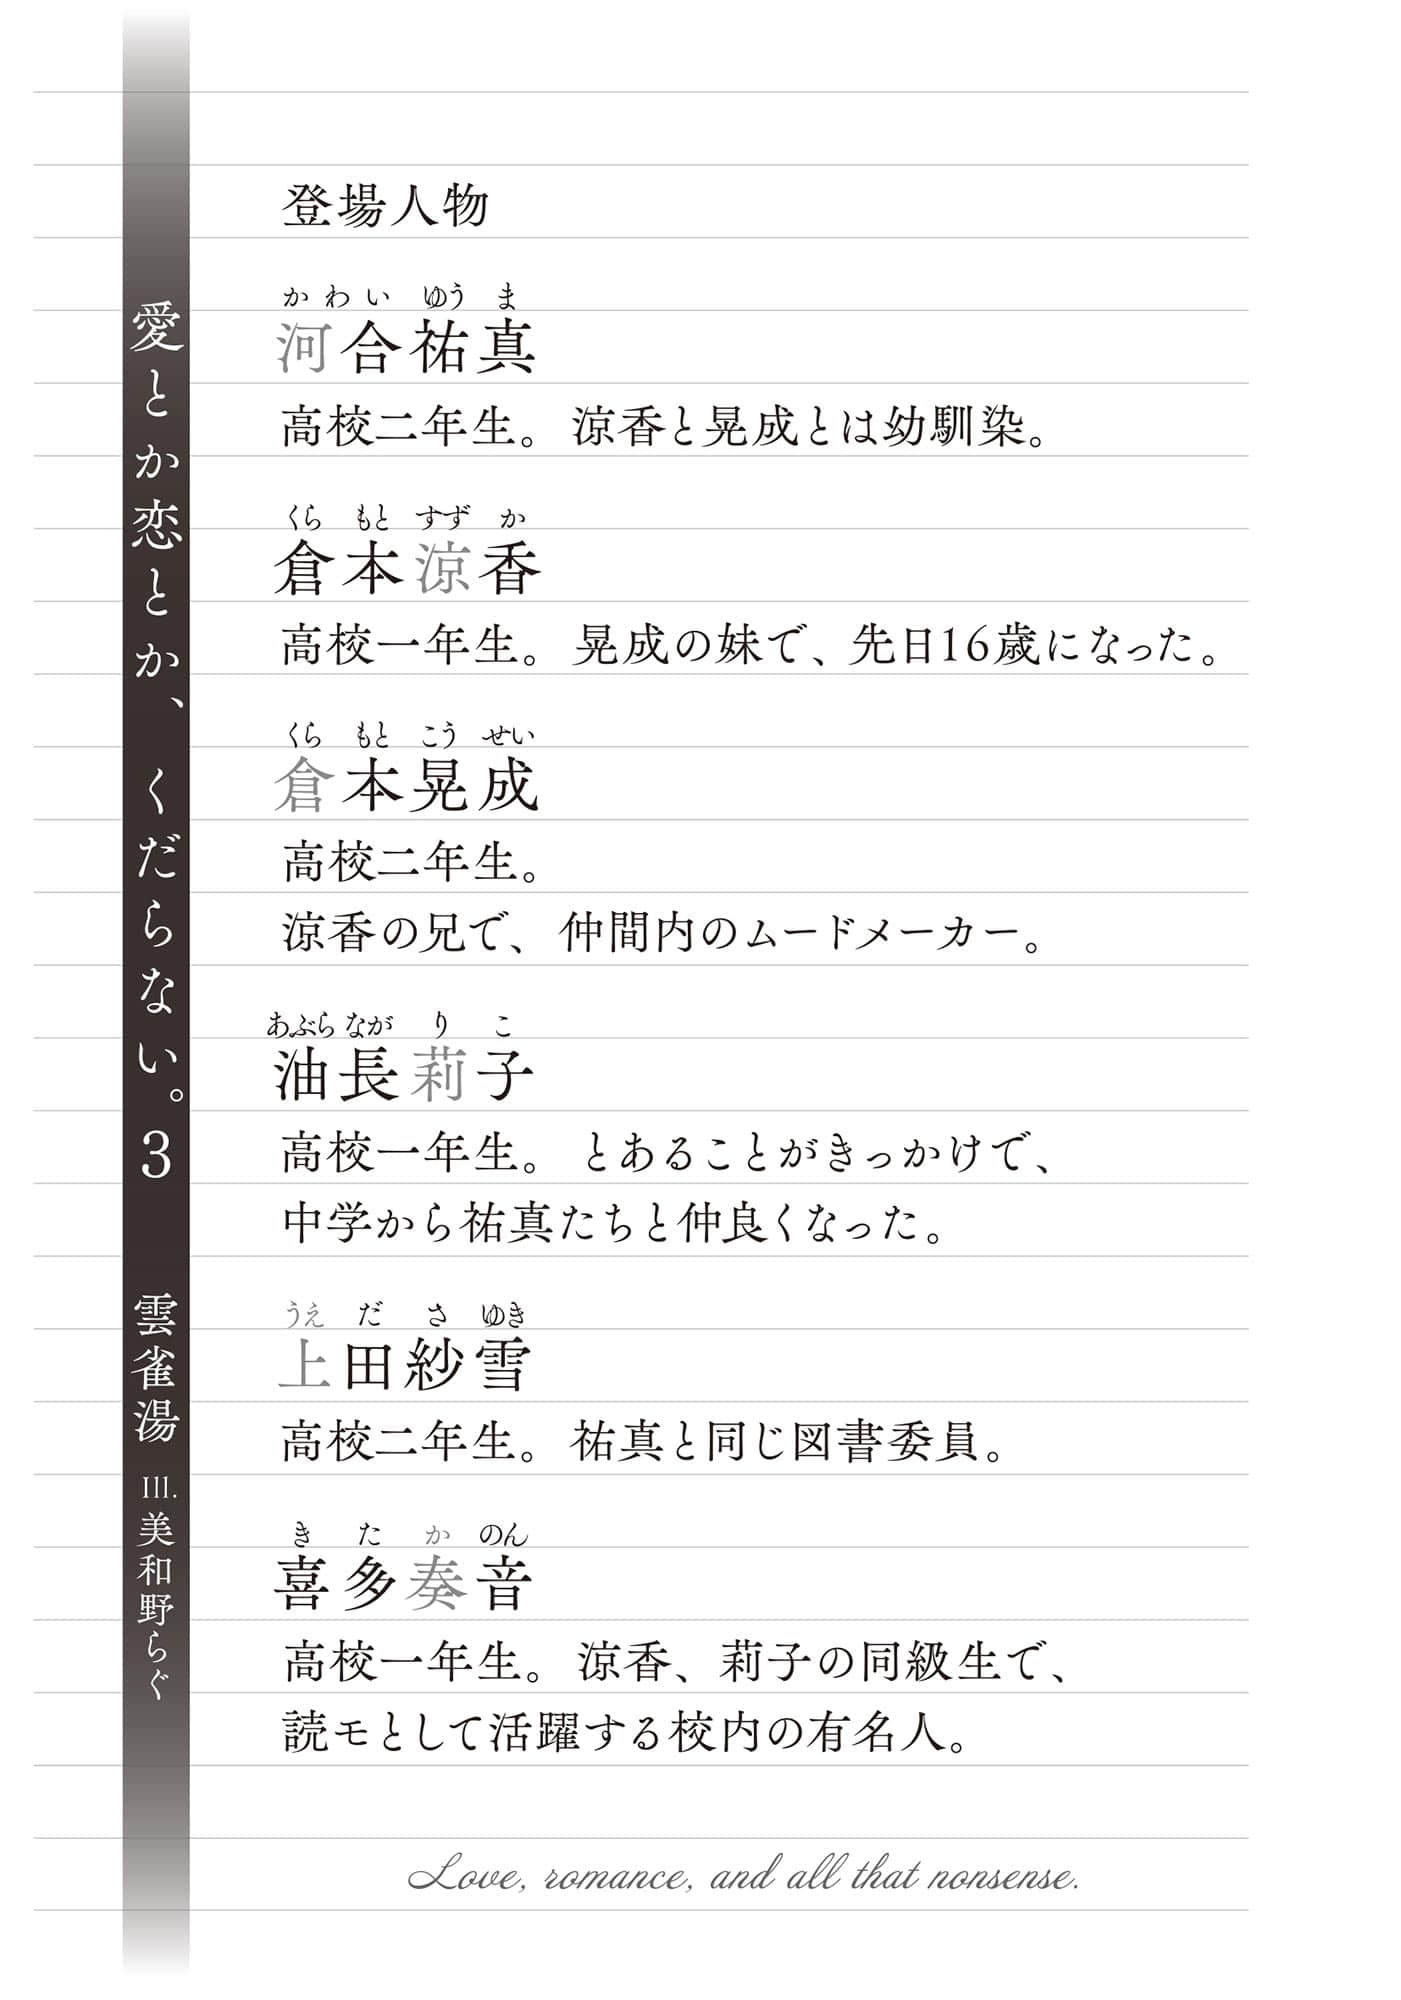 愛とか恋とか、くだらない。3 雲雀湯 Ill.美和野らぐ
登場人物
かわい ゆう ま
河合祐真
高校二年生。涼香と晃成とは幼馴染。
くら もと すず か
倉本涼香
高校一年生。晃成の妹で、先日16歳になった。
くら もと こう せい
倉本晃成
高校二年生。
涼香の兄で、仲間内のムードメーカー。
あぶら なが り こ
油長莉子
高校一年生。とあることがきっかけで、
中学から祐真たちと仲良くなった。
うえ だ さ ゆき
上田紗雪
高校二年生。祐真と同じ図書委員。
き た か のん
喜多奏音
高校一年生。涼香、莉子の同級生で、
読モとして活躍する校内の有名人。
Love, romance, and all that nonsense.